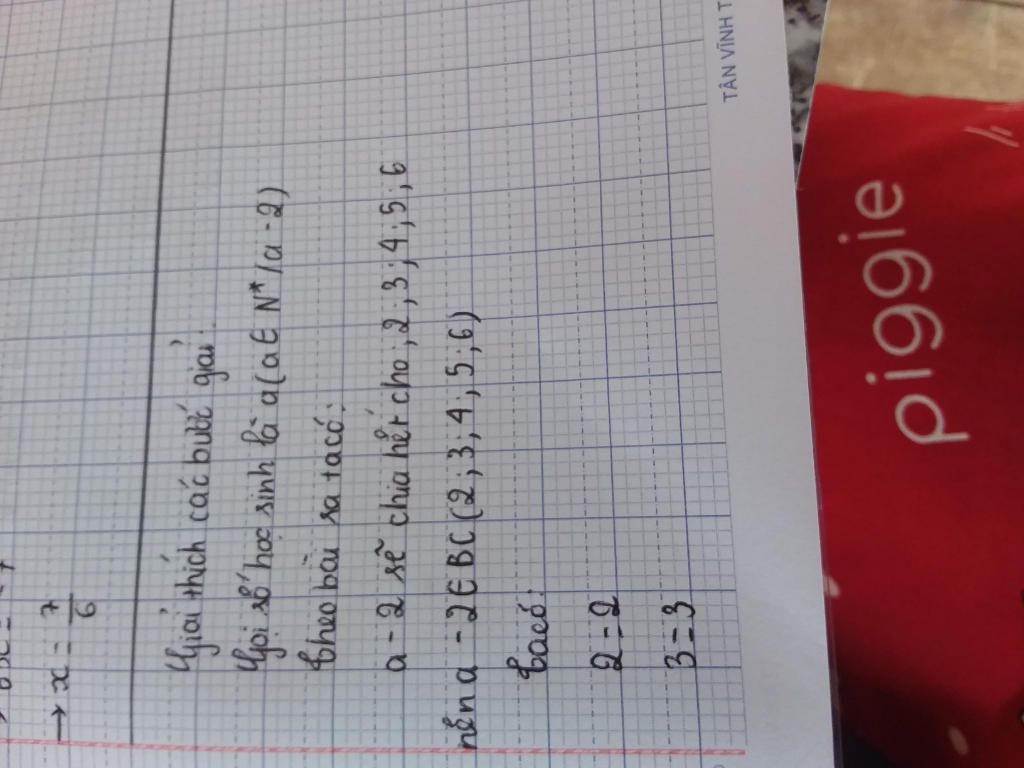 → x = 7/6
Giải thích các bướ giải:
Gọi số học sinh là a (a ∈ N* / a - 2)
theo bài ra ta có:
a - 2 sẽ chia hết cho, 2, 3; 4, 5; 6
nên a - 2 ∈ BC (2, 3; 4, 5; 6)
ta có:
2 = 2
3 = 3
TÂN VĨNH T
piggie